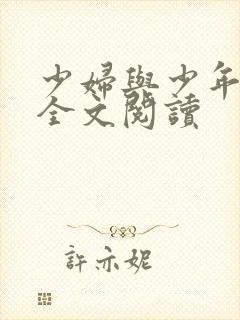 少婦與少年
全文閱讀
許亦妮